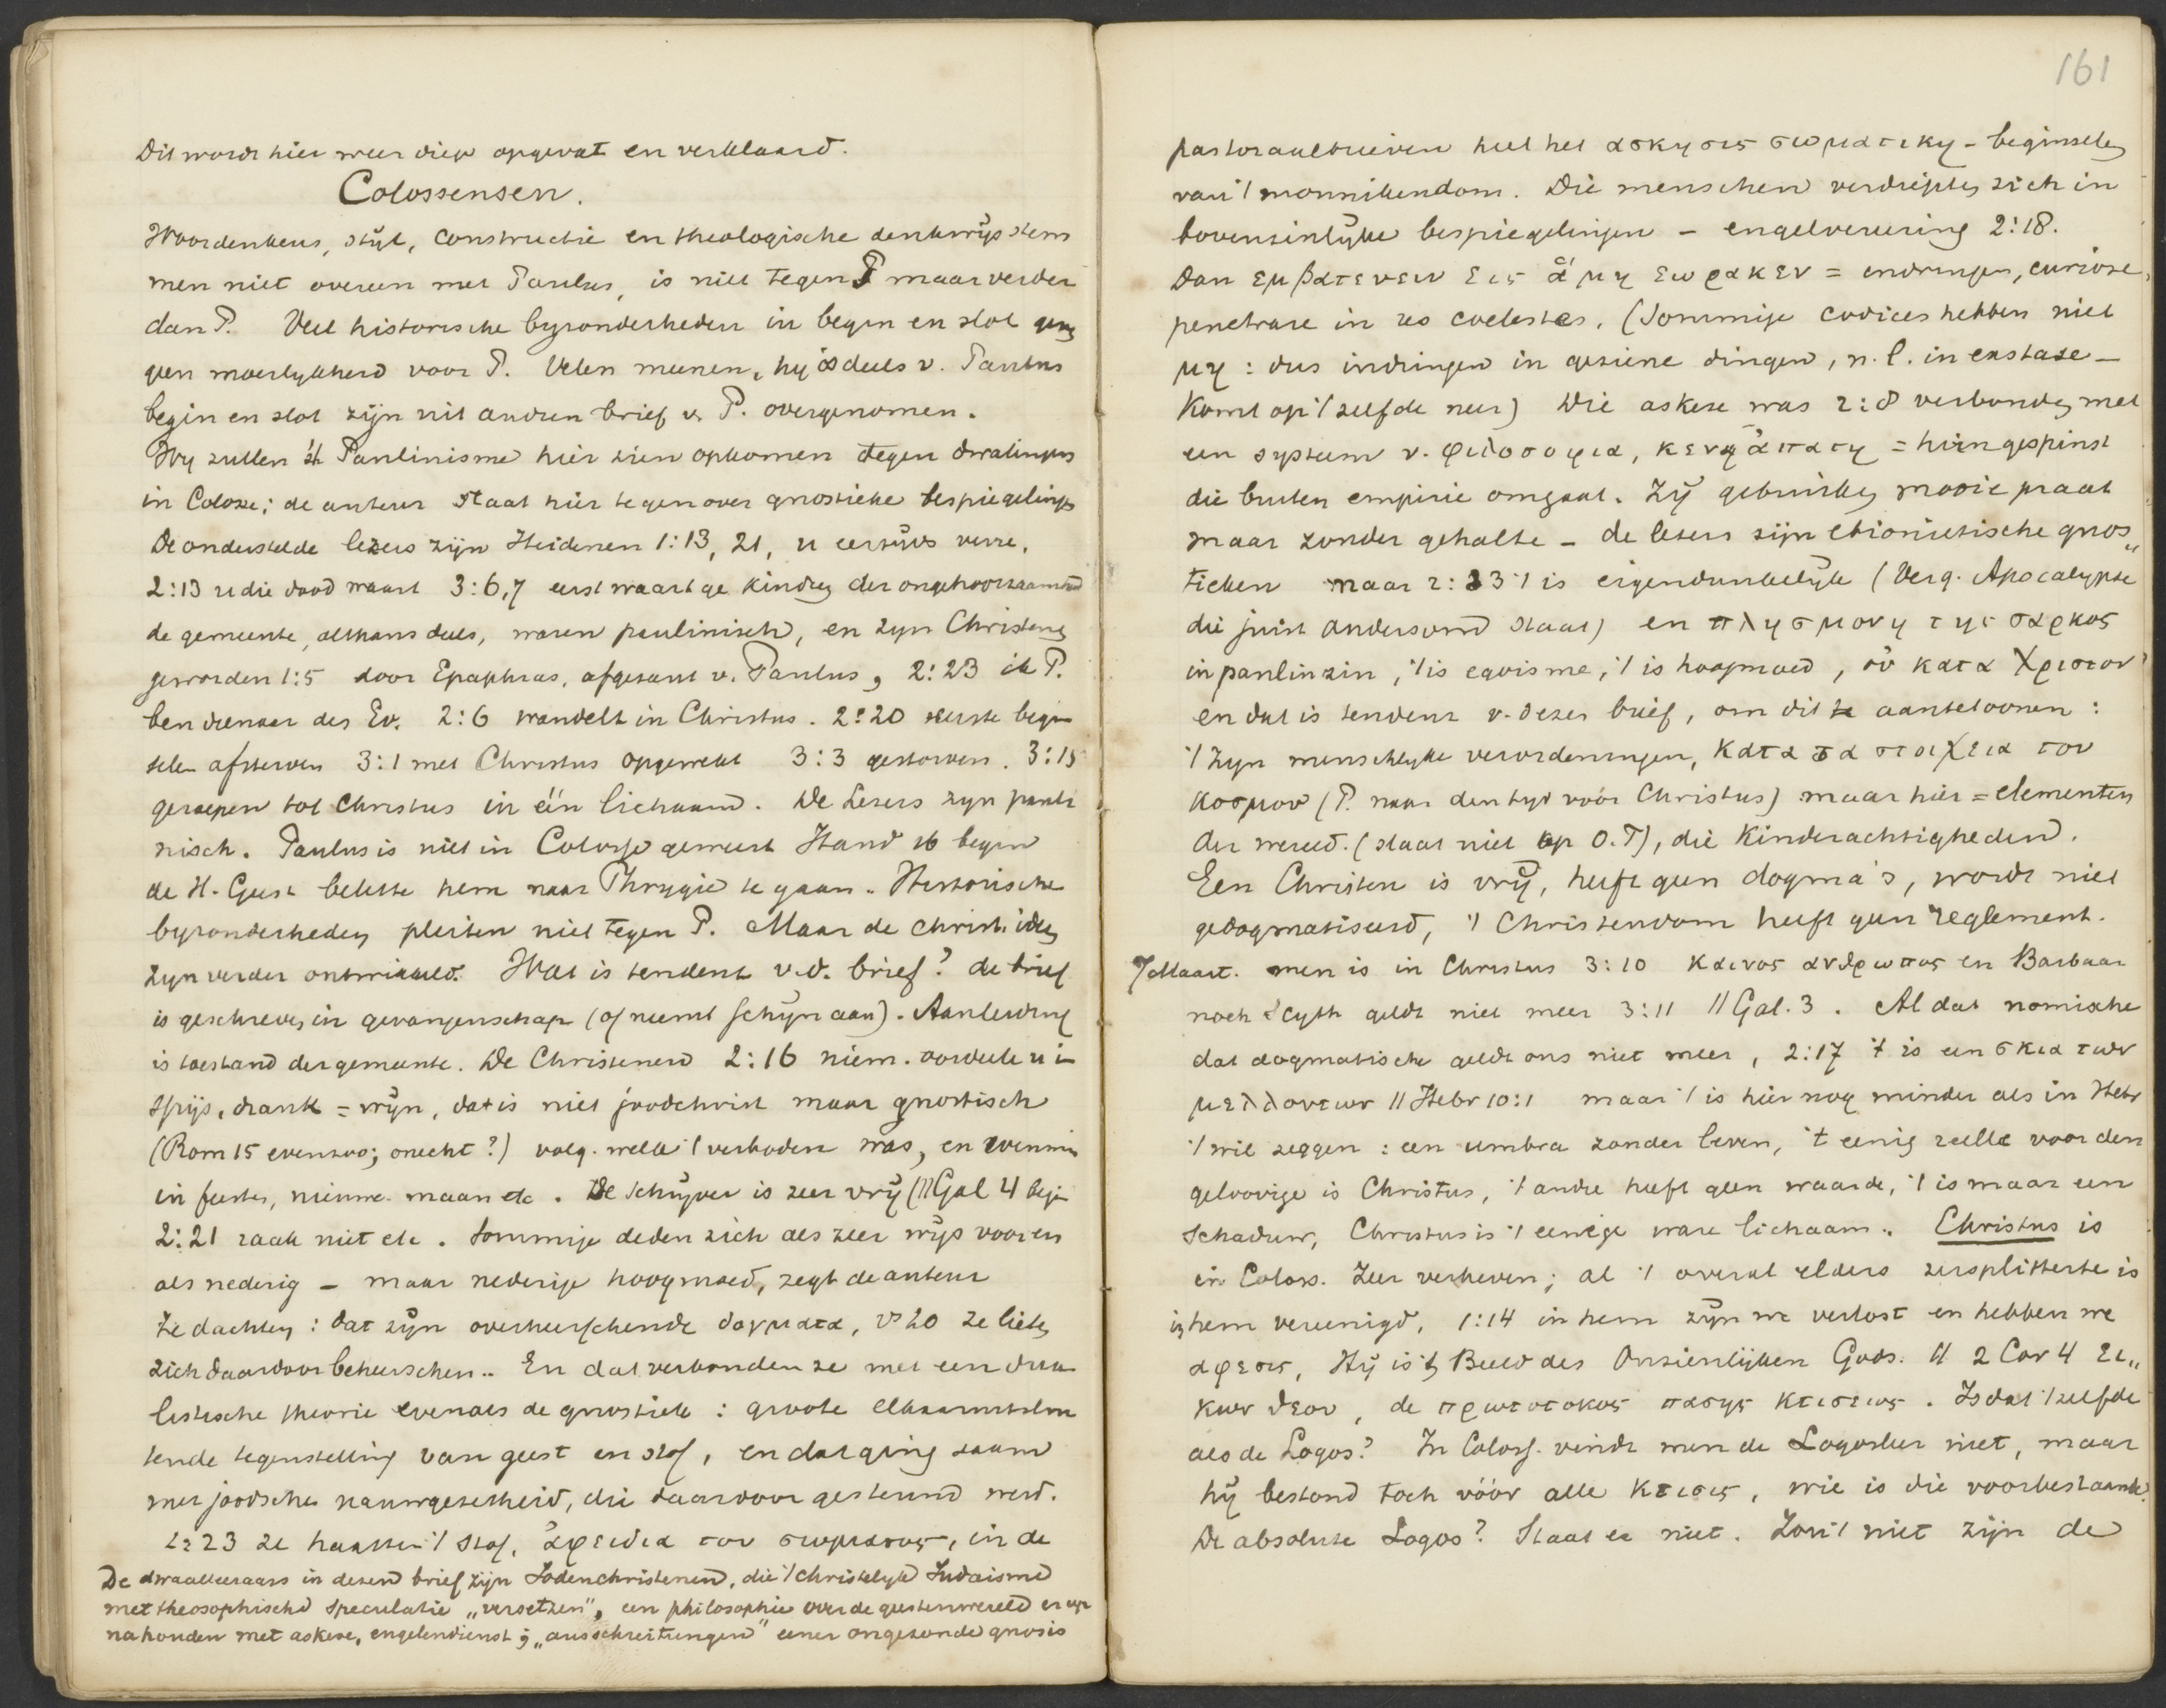 Dit wordt hier weer diep opgevat en verklaard.
Colossensen.
Woordenkeus, stijl, constructie en theologische denkwijs stem
men niet overeen met Paulus, is niet tegen P maar verder
dan P. Veel historische byzonderheden in begin en slot
geen moeilykheid voor P. Velen meenen, hy is deels v. Paulus
begin en slot zijn uit andren brief v. P. overgenomen.
Wy zullen 't Paulinisme hier zien opkomen tegen dwalingen
in Colosse; de auteur staat hier tegenover gnostieke bespiegelingen
De onderstelde lezers zijn Heidenen 1:13, 21, u eertijds verre,
2:13 u die dood waart 3:6,7 eerst waart ge kindren der ongehoorzaamheid
de gemeente, althans deels, waren paulinisch, en zyn Christenen
geworden 1:5 door Epaphras, afgezant v. Paulus, 2:23 ik P.
ben dienaar des Ev. 2:6 wandelt in Christus. 2:20 eerste begin
selen afsterven 3:1 met Christus opgewekt 3:3 gestorven. 3:15
geroepen tot Christus in één lichaam. De Lezers zyn pauli
nisch. Paulus is niet in Colosse geweest Hand 16 begin
de H. Geest belette hem naar Phrygie te gaan. Historische
byzonderheden pleiten niet tegen P. Maar de christ. ideen
zyn verder ontwikkeld. Wat is tendenz v.d. brief? de brief
is geschreven in gevangenschap (of neemt schijn aan). Aanleiding
is toestand der gemeente. De Christenen 2:16 niem. oordeele u in
spijs, drank = wijn, dat is niet joodchrist maar gnostisch
(Rom 15 evenzoo; onecht?) volg. welke 't verboden was, en evenmin
in feesten, nieuwe maan etc. De schrijver is zeer vrij (// Gal 4 begin
2:21 raak niet etc. Sommige deden zich als zeer wijs voor en
als nederig – maar nederige hoogmoed, zegt de auteur
Ze dachten: dat zijn overheerschende δογματα, vs 20 ze lieten
zich daardoor beheerschen. En dat verbonden ze met een dua
listische theorie evenals de gnostiek: groote elkaaruitslui
tende tegenstelling van geest en stof, en dat ging saam
met joodsche nauwgezetheid, die daardoor gesteund werd.
2:23 ze haatten 't stof, ἀφειδια του σωματος, in de
De dwaalleeraars in dezen brief zijn Jodenchristenen, die 't christelyk Judaisme
met theosophische speculatie „versetzen", een philosophie over de geestenwereld er op
na houden met askese, engelendienst; „ausschreitungen" eener ongezonde gnosis
161
pastoraalbrieven heet het ασκησις σωματικη – beginselen
van 't monnikendom. Die menschen verdiepten zich in
bovenzinlijke bespiegelingen – engelvereering 2:18.
Dan εμβατευειν εις ἁ μη εωρακεν = indringen, curiose,
penetrare in res coelestes. (Sommige codices hebben niet
μη: dus indringen in geziene dingen, n.l. in extase –
Komt op 't zelfde neer) Die askese was 2:8 verbonden met
een systeem v. φιλοσοφια, κενη ἀπατη = hersengespinst
die buiten empirie omgaat. Zij gebruiken mooie praat
maar zonder gehalte – de lezers zijn ebionietische gnos„
tieken maar 2:23 't is eigendunkelijk (Verg. Apocalypse
die juist andersom staat) en πλησμονη της σαρκος
in paulin zin, 't is egoisme, 't is hoogmoed, οὐ κατα Χριστον
en dat is tendenz v. dezen brief, om dit te aantetoonen:
't Zyn menschelyke verordeningen, κατα τα στοιχεια του
κοσμου (P. naar den tyd vóór Christus) maar hier = elementen
der wereld. (slaat niet op O.T), die Kinderachtigheden.
Een Christen is vrij, heeft geen dogma's, wordt niet
gedogmatiseerd, 't Christendom heeft geen reglement.
7 Maart. men is in Christus 3:10 καινος ανθρωπος en Barbaar
noch Scyth geldt niet meer 3:11 // Gal. 3. Al dat nomische
dat dogmatische geldt ons niet meer, 2:17 't is een σκια των
μελλοντων // Hebr 10:1 maar 't is hier nog minder als in Hebr
't wil zeggen: een umbra zonder leven, 't eenig reëele voor den
geloovige is Christus, 't andre heeft geen waarde, 't is maar een
schaduw, Christus is 't eenige ware lichaam. Christus is
in Coloss. Zeer verheven; al 't overal elders versplitterte is
in hem vereenigd, 1:14 in hem zijn we verlost en hebben we
αφεσις, Hij is 't Beeld des Onzienlijken Gods. // 2 Cor 4 ει„
κων θεου, de πρωτοτοκος πασης κτισεως. Is dat 't zelfde
als de Logos? In Coloss. vindt men de Logosleer niet, maar
hij bestond toch vóór alle κτισις, wie is die voorbestaande?
De absolute Logos? Staat er niet. Zou 't niet zijn de